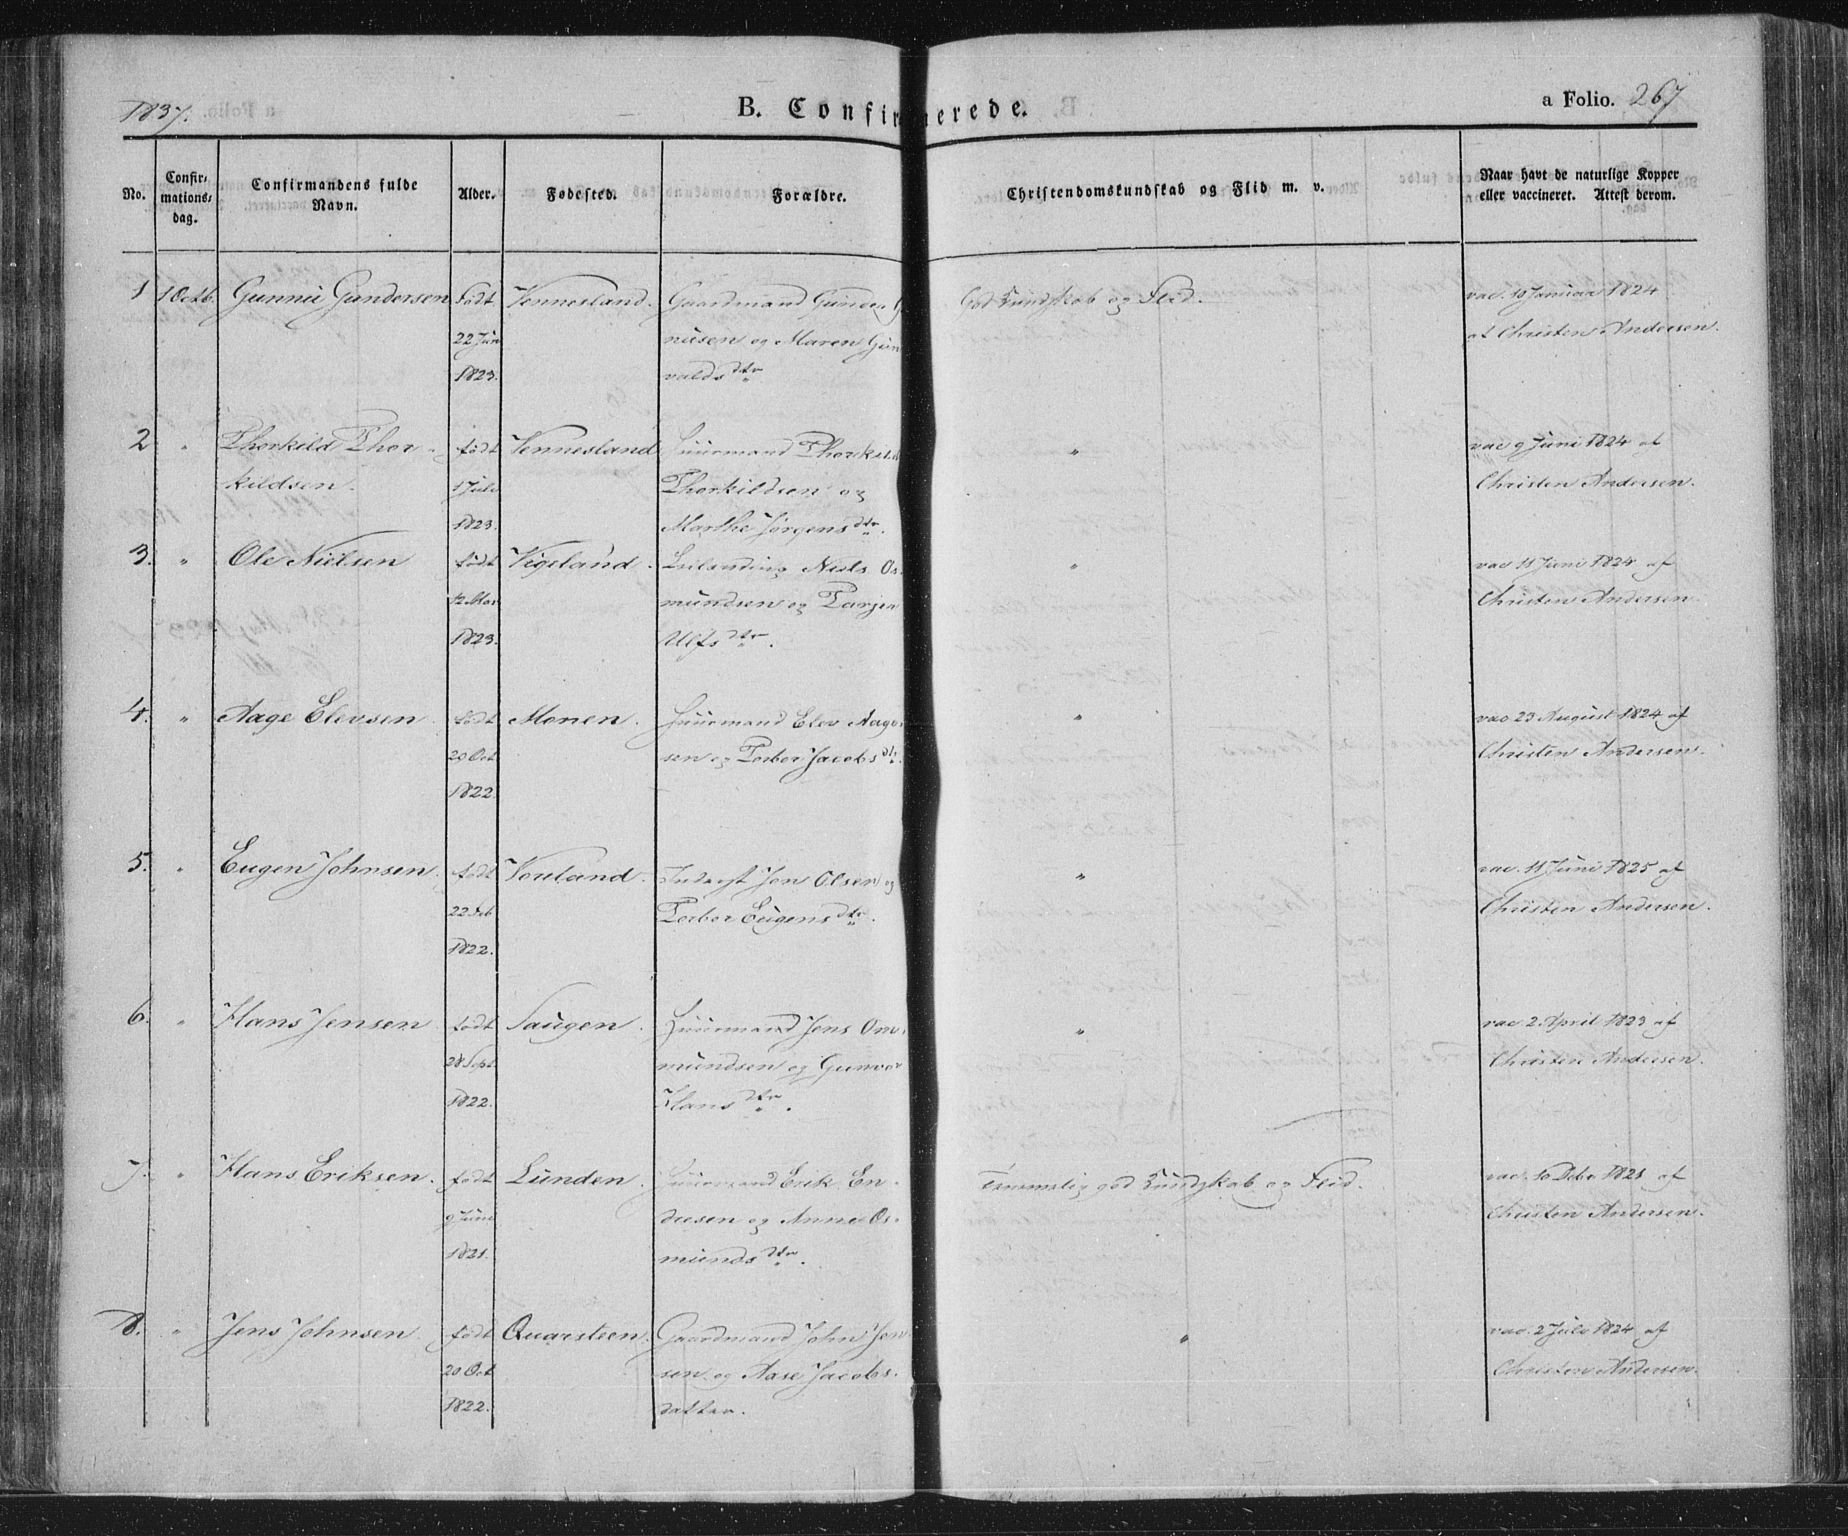 1837.
B. Confirmerede.
a Folio. 267
No.
Confir-
mations-
dag.
Confirmandens fulde
Navn.
Alder.
Fødested.
Forældre.
Christendomskundskab og Flid m. v.
Naar havt de naturlige Kopper
eller vaccineret. Attest derom.
1 1 Octb. Gunnu Gundersen Født Vennesland. Gaardmand Gunder G God Kundskab og Flid. vac. 10 Januar 1824
22 Jun nusen og Maren Gun af Christen Andersen.
1823. valdsdtr
2 " Thorkild Thor- født Vennesland Huusmand Thorkild " vac 9 Juni 1824 af
kildsen. 1 Juli Thorkildsen og Christen Andersen.
1823. Marthe Jørgensdtr.
3. " Ole Nielsen født Vigeland. Leilænding Niels Os- " vac 11 Juni 1824 af
12 Mar mundsen og Tarjer Christen Andersen.
1823. Ulfsdtr.
4. " Aage Elevsen. født Monen. Huusmand Elev Aage- " vac 23 August 1824 af
20 Oct sen og Torbor Jacobsdtr. Christen Andersen.
1822.
5. " Eugen Johnsen. født Voreland. Inderst Jon Olsen og " vac. 11 Juni 1825 af
22 Feb Torbor Eugensdtr. Christen Andersen.
1822.
6. " Hans Jensen født Saugen. Huusmand Jens Om- " vac 2. April 1823 af
28 Sept mundsen og Gunvor Christen Andersen.
1822. Hansdtr.
7. " Hans Eriksen. født Lunden. Huusmand Erik En- Temmelig god Kundskab og Flid. vac. 10 Debr 1821 af
9 Juni dresen og Anne Os- Christen Andersen.
1821. mundsdtr.
8. " Jens Johnsen. født Quarsteen. Gaardmand John Jen " vac. 2 Juli 1824 af
20 Oct sen og Aase Jacobs- Christen Andersen.
1822. datter.